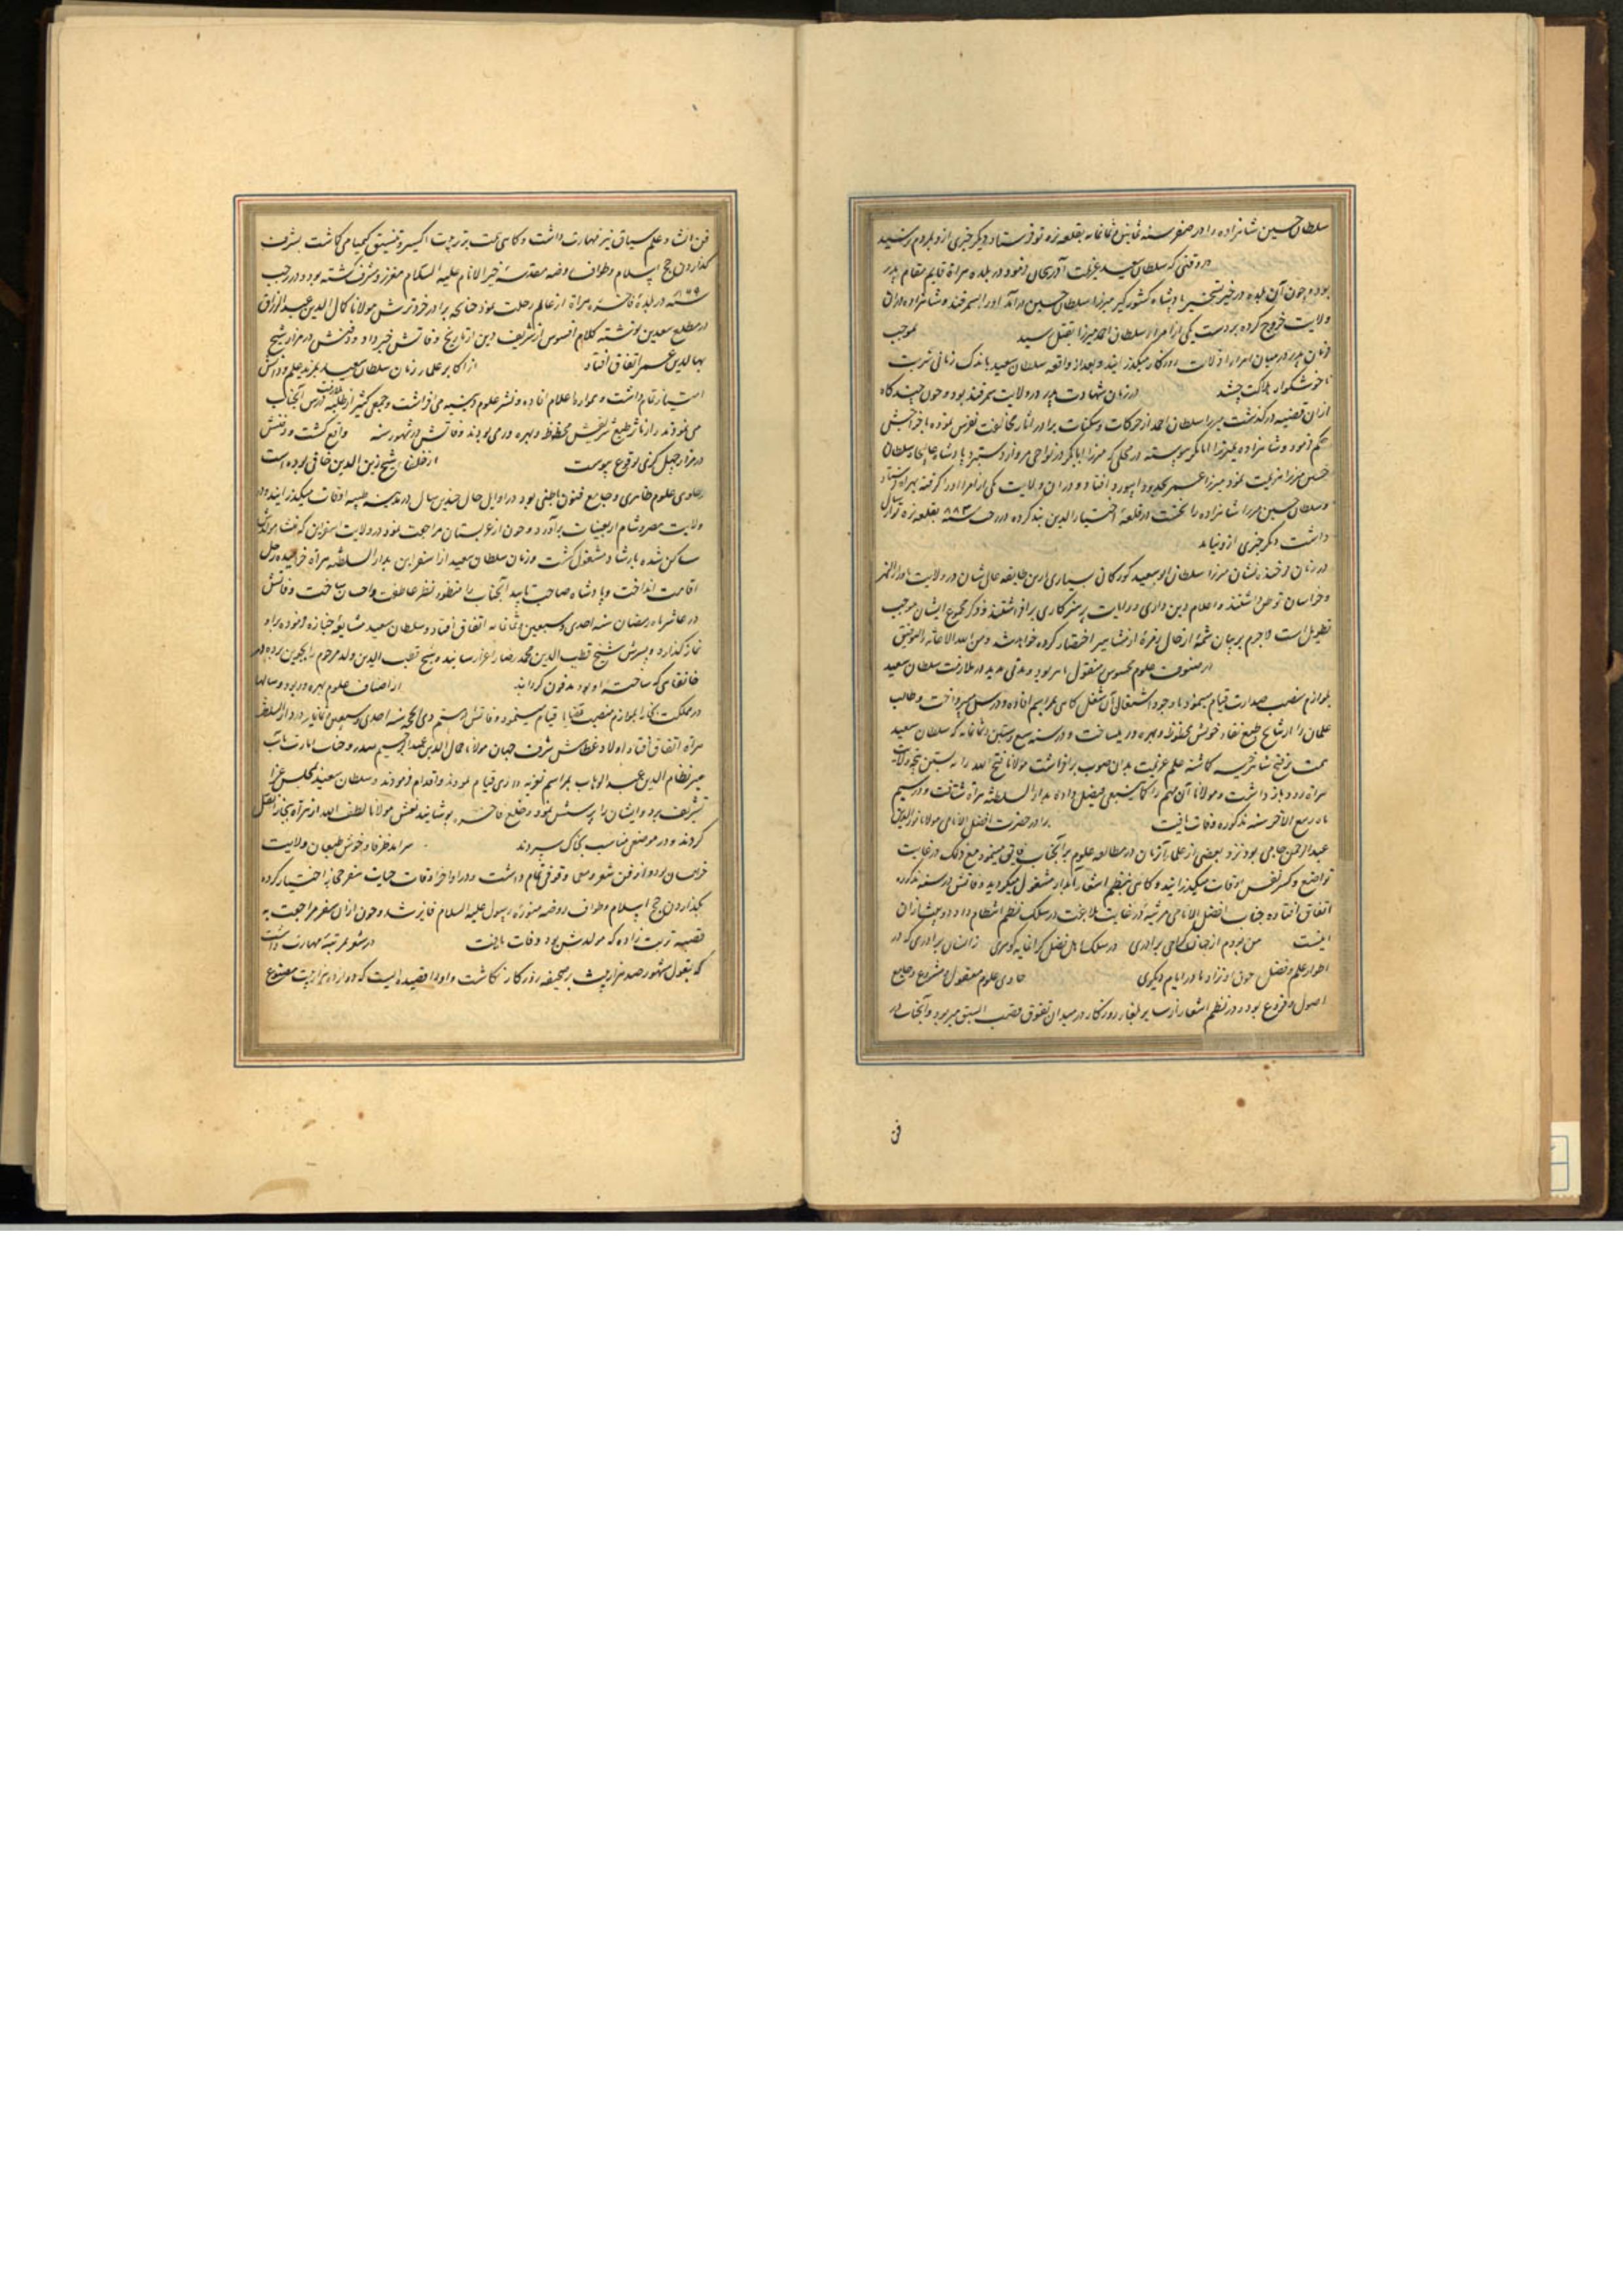 سلطان حسین شاهزاده را در صفر سنه ثمانین و ثمانمائه بقلعه نره تو فرستاد و دیگر خبری ازو بمردم نرسید
در وقتی که سلطان سعید عزیمت آذربیجان فرمود در بلده هراة قایم مقام پدر
بود و چون آن بلده در حیز تسخیر پادشاه کشورگیر میرزا سلطان حسین درآمد او را بسمرقند و شاهزاده در آن
ولایت خروج کرده بر دست یکی از امراء سلطان احمد میرزا بقتل رسید بموجب
فرمان پدر در میان امراء از لات روزگار میگذرانید و بعد از واقعه سلطان سعید باندک زمانی شربت
ناخوشگوار هلاکت چشید در زمان شهادت پدر در ولایت سمرقند بود و چون چند گاه
ازان قضیه درگذشت میرزا سلطان احمد از حرکات و سکنات برادر آثار مخالفت تفرس نموده باخراجش
حکم فرمود و شاهزاده بمیرزا ابابکر پیوسته در محلی که میرزا ابابکر در نواحی مرو از دستبرد پادشاه عالیجاه سلطان
حسین میرزا هزیمت نمود میرزا عمر بحدود ابیورد افتاد و در آن ولایت یکی از امرا او را گرفته بهراة فرستاد
و سلطان حسین میرزا شاهزاده را نخست در قلعه اختیار الدین بند کرده در رجب سنه ۸۸۳ بقلعه نره تو ارسال
داشت دیگر خبری ازو نیامد
در زمان فرخنده نشان میرزا سلطان ابو سعید کورکانی بسیاری ازین طایفه عالی شان در ولایت ماوراءالنهر
و خراسان توطن داشتند و اعلام دین داری و رایات پرهیزکاری برافراشتند و ذکر مجموع ایشان موجب
تطویل است لاجرم بر بیان شمهٔ از حال زمرهٔ از مشاهیر اختصار کرده خواهد شد و من الله الاعانه والتوفیق
در صنوف علوم محسوس و منقول ماهر بود و مدتی مدید در ملازمت سلطان سعید
بلوازم منصب صدارت قیام مینمود و با وجود اشتغال آن شغل گاهی بمراسم افاده و درس میپرداخت و طالب
علمان را از نتایج طبع نقاد خویش محظوظ و بهره‌ور میساخت و در سنه سبع و ستین و ثمانمائه که سلطان سعید
همت بر فتح شاهرخیه گماشته علم عزیمت بدان صوب برافراشت مولانا فتح الله را به ولایت
هراة رود بازداشت و مولانا آن مهم را کما ینبغی فیصل داده بدار السلطنه هراة شتافت و در سیم
ماه ربیع الآخر سنه مذکوره وفات یافت برادر حضرت افضل الانامی مولانا نور الدین
عبدالرحمن جامی بود و نزد بعضی از علماء آن زمان در مطالعه علوم بر آنجناب فایق مینمود مع ذلک در غایت
تواضع و کسر نفس اوقات میگذرانید و گاهی بنظم اشعار آبدار مشغول میگردید و وفاتش در سنه مذکوره
اتفاق افتاده جناب افضل الانامی مرثیهٔ در غایت بلاغت در سلک نظم انتظام داد دو بیت از آن
اینست من بودم از جهان و گرامی برادری در سلک اهل فضل گرانمایه گوهری زانسان برادری که در
اطوار علم و فضل چون او نزاد مادر ایام دیگری حاوی علوم معقول و مشروع و جامع
اصول و فروع بود و در نظم اشعار از سایر بلغاء روزگار در میدان تفوق قصب السبق میربود و آنجناب در
فن
فن انشا و علم سیاق نیز مهارت داشت و گاهی همت بر تربیت اکسیر و تنسیق کیمیا می گماشت بشرف
گذاردن حج اسلام و طواف روضه مقدسه خیر الانام علیه السلام معزز و مشرف گشته بود و در رجب
سنه ۸۶۹ در بلده فاخره هراة از عالم رحلت نمود چنانچه برادر خردترش مولانا کمال الدین عبد الرزاق
در مطلع سعدین نوشته کلام افسوس از شریف دین از تاریخ وفاتش خبر داد و دفنش در مزار شیخ
بهاء الدین عمر اتفاق افتاد از اکابر علماء زمان سلطان سعید بمزید علم و دانش
امتیاز تمام داشت و همواره اعلام افاده و نشر علوم دینیه می افراشت و جمعی کثیر از طلبه ملازمت درس آنجناب
می نمودند و از مآثر طبع شریفش محظوظ و بهره ور می بودند وفاتش در شهور سنه واقع گشت و دفنش
در مزار چهل گزی بوقوع پیوست از خلفاء شیخ زین الدین خافی بوده است
و حاوی علوم ظاهری و جامع فنون باطنی بود در اوایل حال چندین سال در مدینه طیبه اوقات میگذرانید و در
ولایت مصر و شام اربعینات برآورد و چون از عربستان مراجعت نمود در ولایت اسفراین که منشاء مولدش
ساکن شده بارشاد مشغول گشت و زمان سلطان سعید از اسفراین بدار السلطنه هراة خرامیده رحل
اقامت انداخت و پادشاه صاحب تایید آنجناب را منظور نظر عاطفت و احسان ساخت وفاتش
در عاشر ماه رمضان سنه احدی و سبعین و ثمانمائه اتفاق افتاد و سلطان سعید مشایعه جنازه فرموده برو
نماز گذارد و پسرش شیخ قطب الدین محمد رضا را اعزاز رسانید و شیخ قطب الدین والد مرحوم را بجوین برده در
خانقاهی که ساخته او بود مدفون گردانید از اصناف علوم بهره ور بود و سالها
در مملکت بخارا بلوازم منصب قضا قیام مینمود وفاتش در بیستم ذی الحجه سنه احدی و سبعین و ثمانمائه در دار السلطنه
هراة اتفاق افتاد اولاد عظامش شرف جهان مولانا جمال الدین عبد الرحیم صدر و جناب امارت مآب
میر نظام الدین عبد الوهاب بمراسم تعزیه داری قیام نمودند و اقدام فرمودند و سلطان سعید بمجلس عزا
تشریف برد و ایشان را پرسش نمود و خلع فاخره پوشانید نعش مولانا لطف الله از هراة ببخارا نقل
کردند و در موضعی مناسب بخاک سپردند سرآمد ظرفا و خوش طبعان ولایت
خراسان بود و از فن شعر و معما وقوفی تمام داشت و در اواخر اوقات حیات سفر حجاز اختیار کرده
بگذاردن حج اسلام و طواف روضه منوره رسول علیه السلام فایز شد و چون ازان سفر مراجعت به
قصبه تربت زاده که مولدش بود وفات یافت در شعر بمرتبهٔ مهارت داشت
که بقول مشهور صد هزار بیت بر صحیفه روزگار نگاشت و او را قصیده ایست که دوازده هزار بیت مصنوع